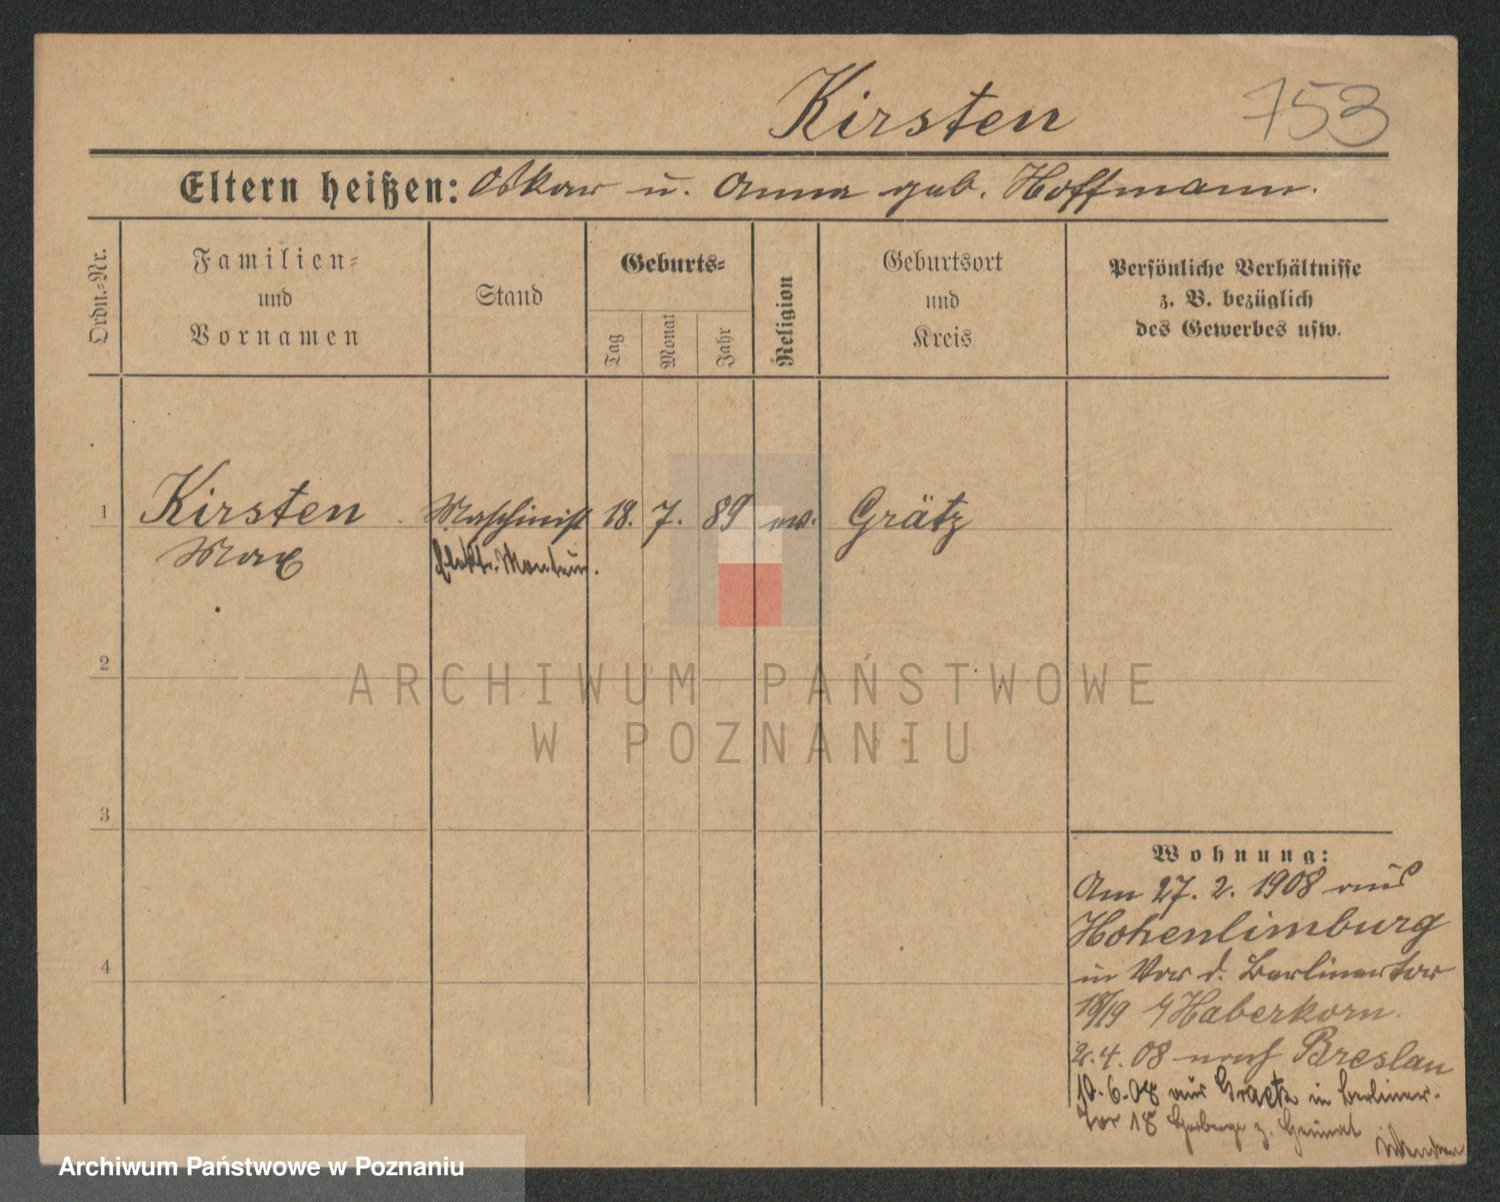 Kirsten 753
Eltern heißen: Oskar u. Anna geb. Hoffmann.
Ordn.=Nr.
Familien=
und
Vornamen
Stand
Geburts=
Tag
Monat
Jahr
Religion
Geburtsort
und
Kreis
Persönliche Verhältnisse
z. B. bezüglich
des Gewerbes usw.
1 Kirsten Maschinist 18. 7. 89 ev. Grätz
Max Elektr. Monteur.
2
ARCHIWUM PAŃSTWOWE
W POZNANIU
3
Wohnung:
Am 27. 2. 1908 aus
Hohenlimburg
in Vor d. Berlinertor
18/19 Haberkorn.
4
2.4.08 nach Breslau
10.6.08 aus Graetz in Berliner-
Tor 18 Herberge z. Heimat
Archiwum Państwowe w Poznaniu